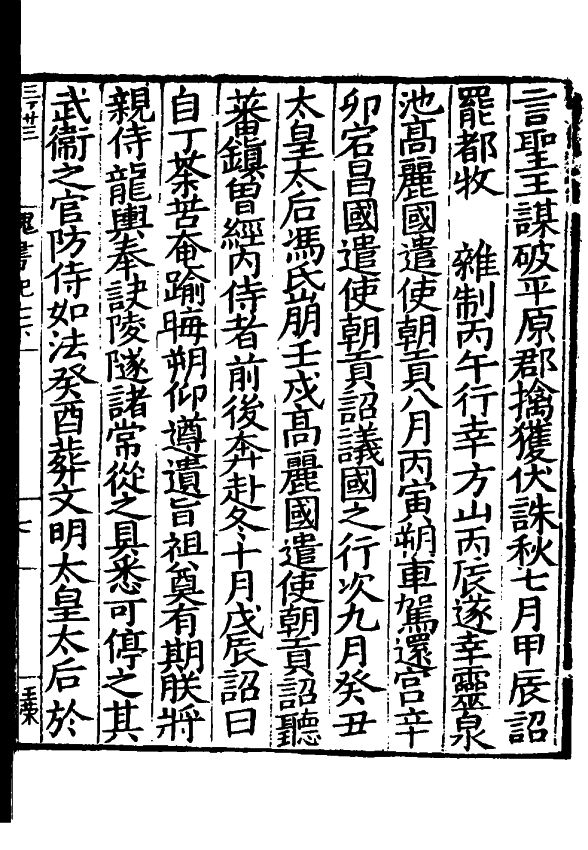 言聖王謀破平原郡擒獲伏誅秋七月甲辰詔
罷都牧　雜制丙午行幸方山丙辰遂幸靈泉
池高麗國遣使朝貢八月丙寅朔車駕還宮辛
卯宕昌國遣使朝貢詔議國之行次九月癸丑
太皇太后馮氏崩壬戌高麗國遣使朝貢詔聽
蕃鎮曾經內侍者前後奔赴冬十月戊辰詔曰
自丁荼苦奄踰晦朔仰遵遺旨祖奠有期朕將
親侍龍輿奉訣陵隧諸常從之具悉可停之其
武衞之官防侍如法癸酉葬文明太皇太后於
魏書紀
王榮